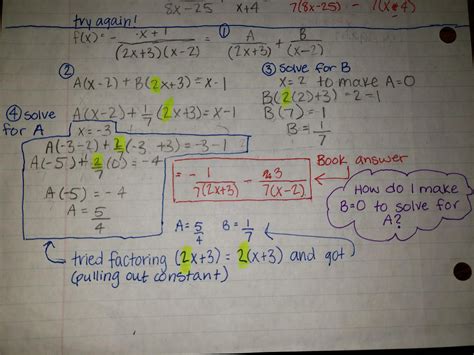 8x-25 x+4 7(8x-25) - 7(x+4)
try again!
f(x) = - x + 1 / (2x+3)(x-2) = ① A / (2x+3) + B / (x-2)
②
A(x-2) + B(2x+3) = x-1
③ Solve for B
x=2 to make A=0
B(2(2)+3) = 2-1
B(7) = 1
B = 1/7
④ solve for A
A(x-2) + 1/7 (2x+3) = x-1
x=-3
A(-3-2) + 2/7 (-3+3) = -3-1
A(-5) + 2/7 (0) = -4
A(-5) = -4
A = 5/4
Book answer
= - 1 / 7(2x+3) - 3 / 7(x-2)
How do I make
B=0 to solve for
A?
A = 5/4 B = 1/7
tried factoring (2x+3) = 2(x+3) and got
(pulling out constant)